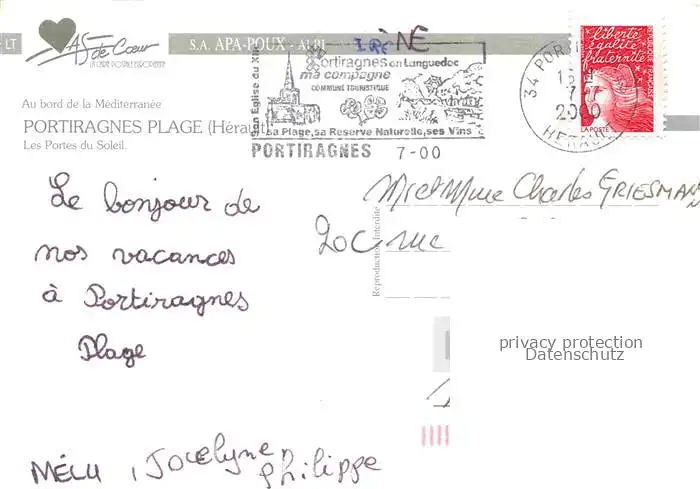 LT
AS de Cœur
LA CARTE POSTALE EUROPEENNE
S.A. APA-POUX - ALBI
IRÈNE
Au bord de la Méditerranée
PORTIRAGNES PLAGE (Hérault)
Les Portes du Soleil.
Son Eglise du XII
Portiragnes en Languedoc
ma compagne
COMMUNE TOURISTIQUE
sa Plage, sa Reserve Naturelle, ses Vins
PORTIRAGNES 7-00
34 PORTI
15 H
7
2000
HERAULT
liberté
égalité
fraternité
LA POSTE
Le bonjour de
nos vacances
à Portiragnes
Plage
Mr et Mme Charles GRIESMAN
20c rue
Reproduction Interdite
privacy protection
Datenschutz
MÉLU , Jocelyne
Philippe